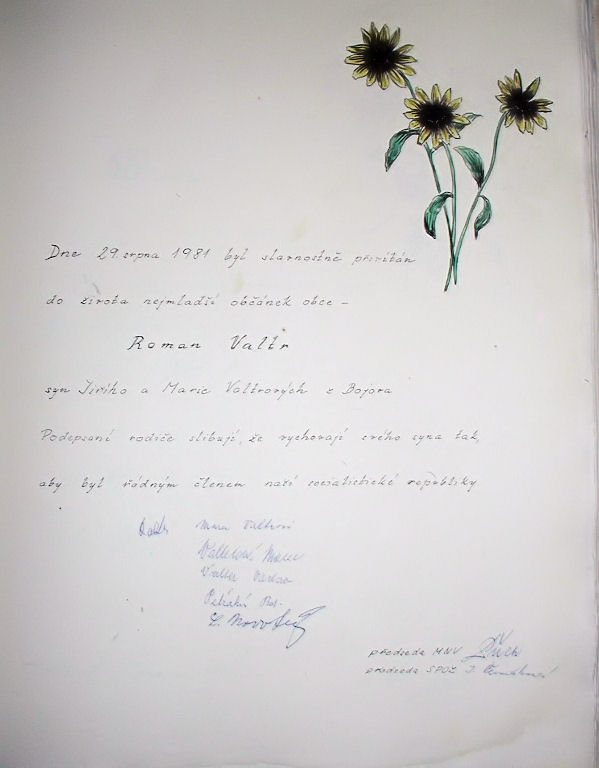 Dne 29. srpna 1981 byl slavnostně přivítán
do života nejmladší občánek obce –
Roman Valtr
syn Jiřího a Marie Valtrových z Bojova
Podepsaní rodiče slibují, že vychovají svého syna tak,
aby byl řádným členem naší socialistické republiky.
L. Novot
předseda MNV
předseda SPOZ J.